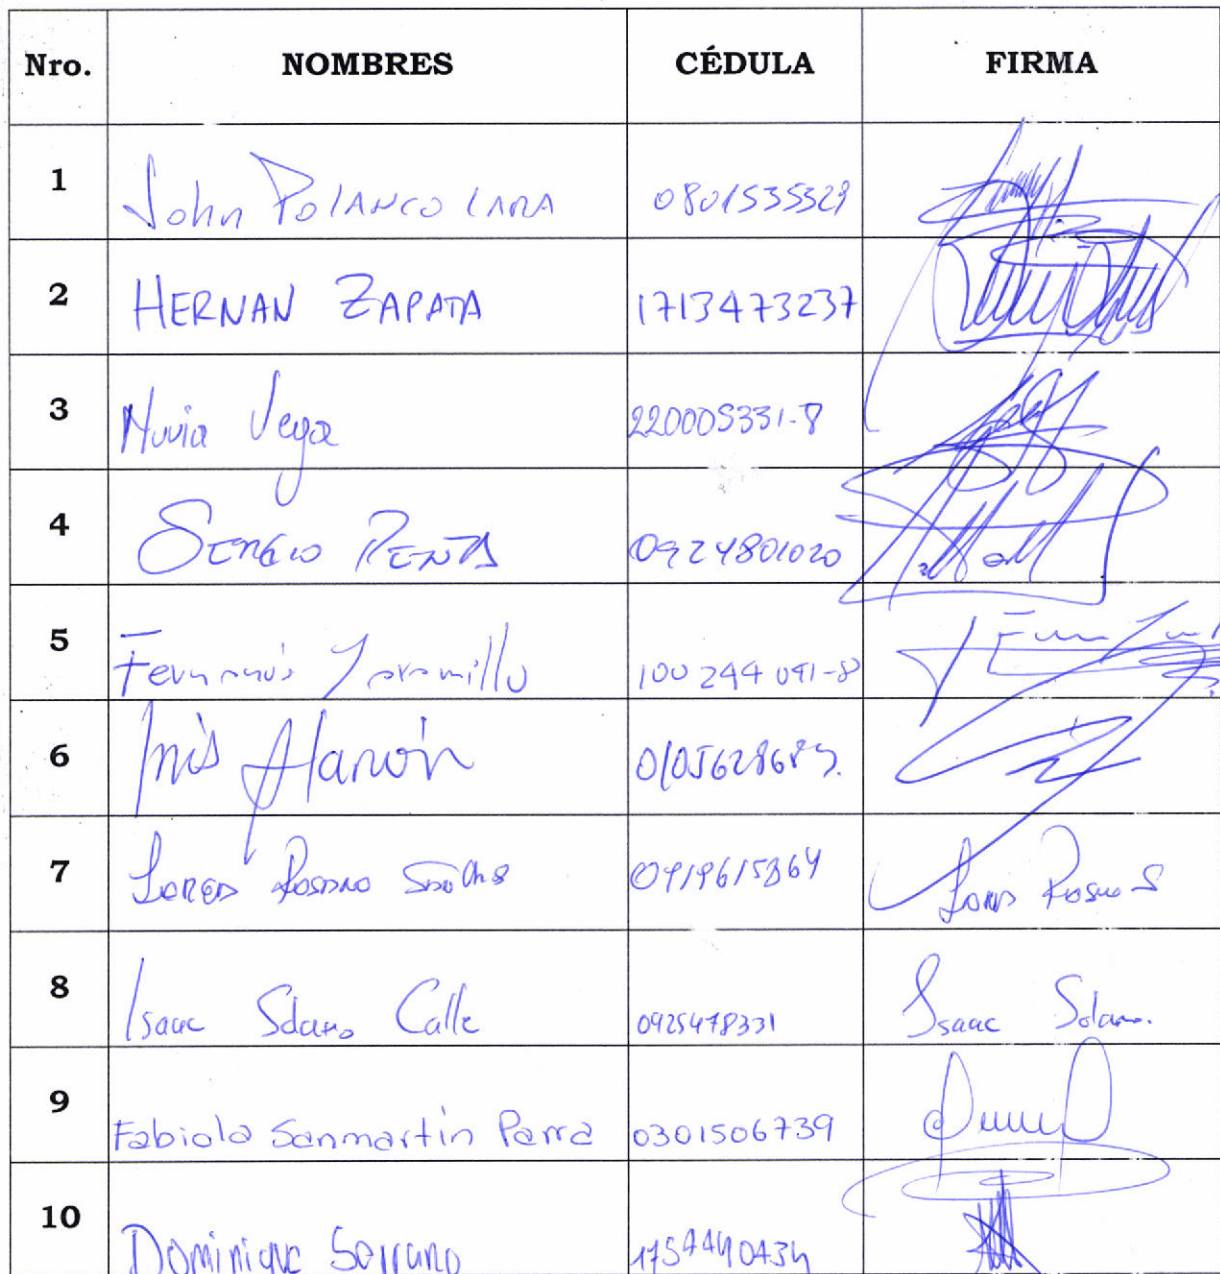 Nro. NOMBRES CÉDULA FIRMA
1 John POLANCO LARA 0801535329
2 HERNAN ZAPATA 1713473237
3 Nuvia Vega 220005331-8
4 SERGIO PEÑA 0924801020
5 Fernando Jaramillo 100 244 091-8
6 Inés Alarcón
7 Rosero 0919615864
8 Isaac Solano Calle 0925478331 Isaac Solano.
9 Fabiola Sanmartín Parra 0301506739
10 Dominique Serrano